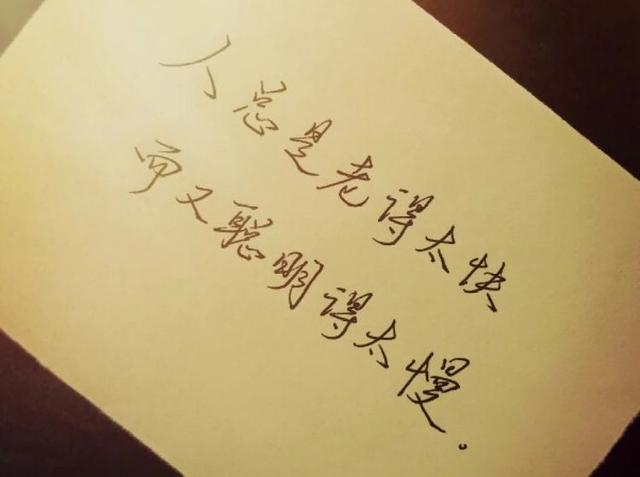 人总是老得太快
而又聪明得太慢。